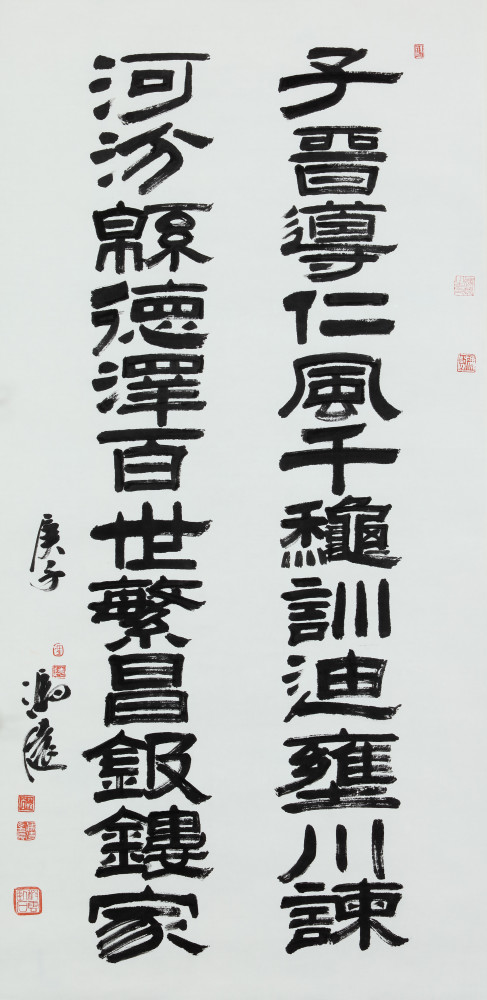 子晉導仁風千龝訓迪壅川諫
河汾緜德澤百世繁昌鈒鏤家
庚子